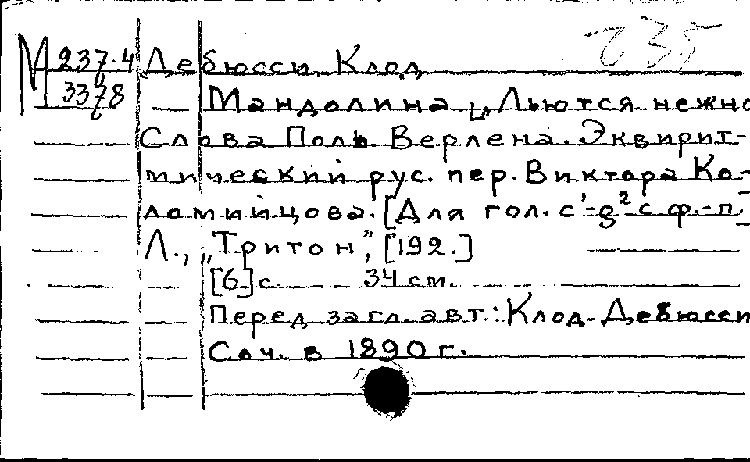 М 237.4 Дебюсси Клод 235
3378 Мандолина. „Льются нежно
Слова Поль Верлена. Эквирит-
мический рус. пер. Виктора Ко-
ломийцова. [Для гол. c¹-g² с ф.-п.]
Л., „Тритон", [192.]
[6] с. 34 cm.
Перед загл. авт.: Клод Дебюсси
Соч. в 1890 г.